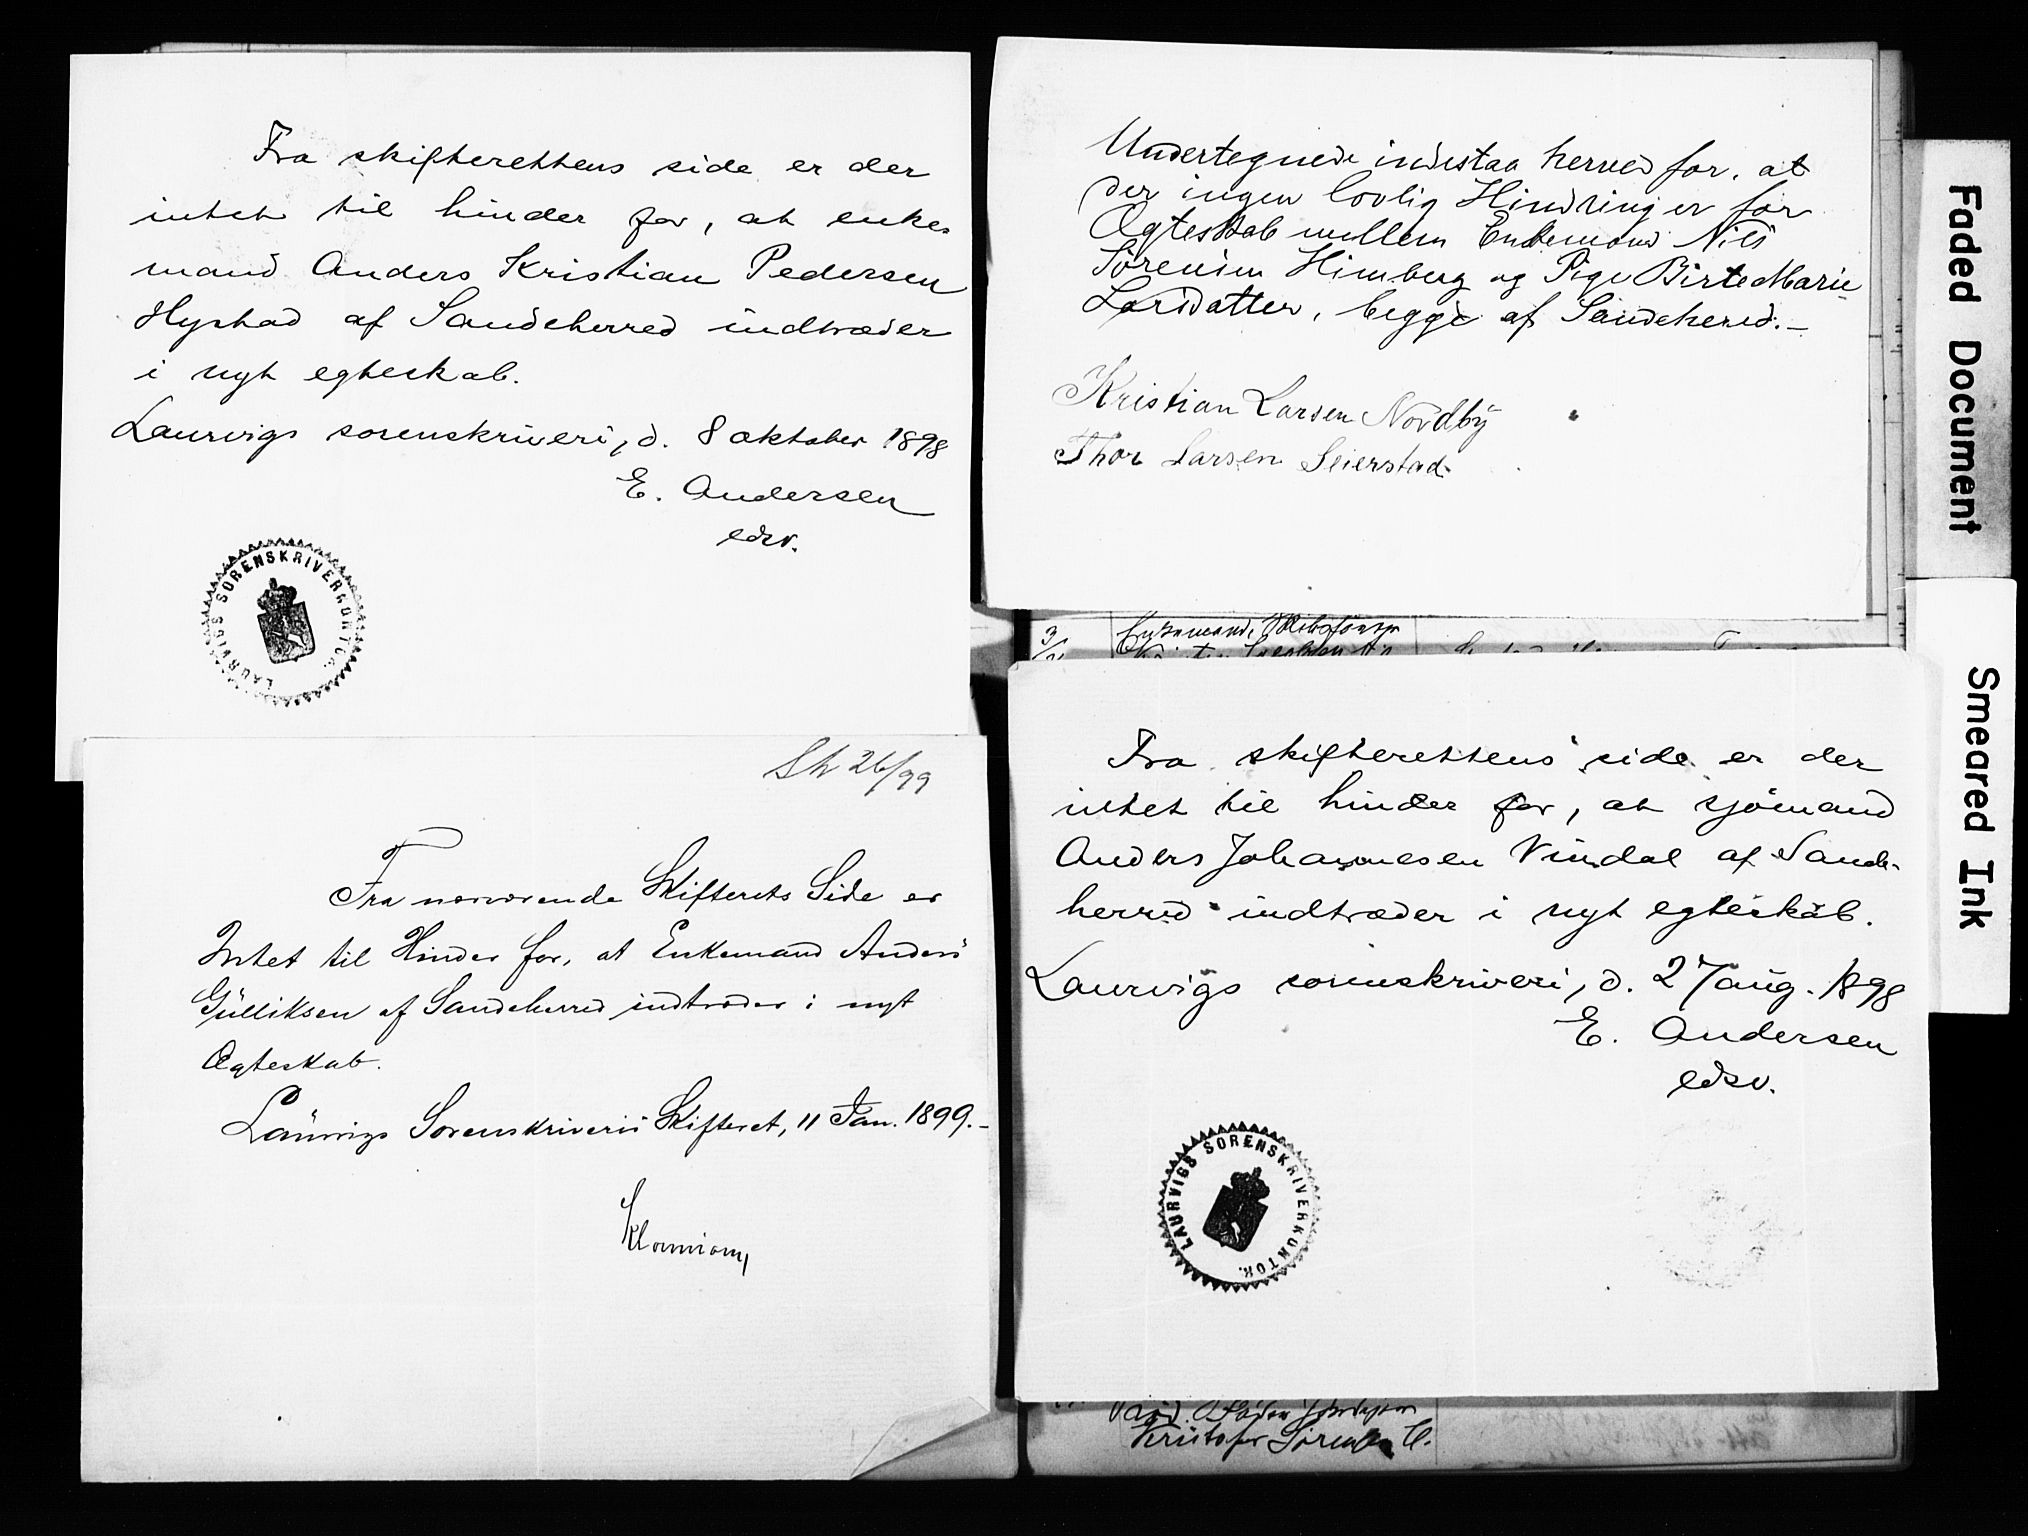 Fra skifterettens side er der
intet til hinder for, at enke-
mand Anders Kristian Pedersen
Hystad af Sandeherred indtræder
i nyt egteskab.
Laurvigs sorenskriveri, d. 8 oktober 1898
E. Andersen
edsv.
LAURVIGS SORENSKRIVERKONTOR.
Undertegnede indestaa herved for, at
der ingen lovlig Hindring er for
Ægteskab mellem Enkemand Nils
Sörensen Himberg og Pige Birte Marie
Larsdatter, begge af Sandeherred.-
Kristian Larsen Nordby
Thor Larsen Seierstad
3/
Enkemand,
26/99
Fra nærværende Skifterets Side er
Intet til Hinder for, at Enkemand Anders
Gulliksen af Sandeherred indtræder i nyt
Ægteskab.
Laurvigs Sorenskriveris Skifteret, 11 Jan. 1899.-
Fra skifterettens side er der
intet til hinder for, at sjömand
Anders Johannesen Vindal af Sande-
herred indtræder i nyt egteskab.
Laurvigs sorenskriveri, d. 27 aug. 1898
E. Andersen
edsv.
LAURVIGS SORENSKRIVERKONTOR.
Kristofer Sörensen
Faded Document
Smeared Ink